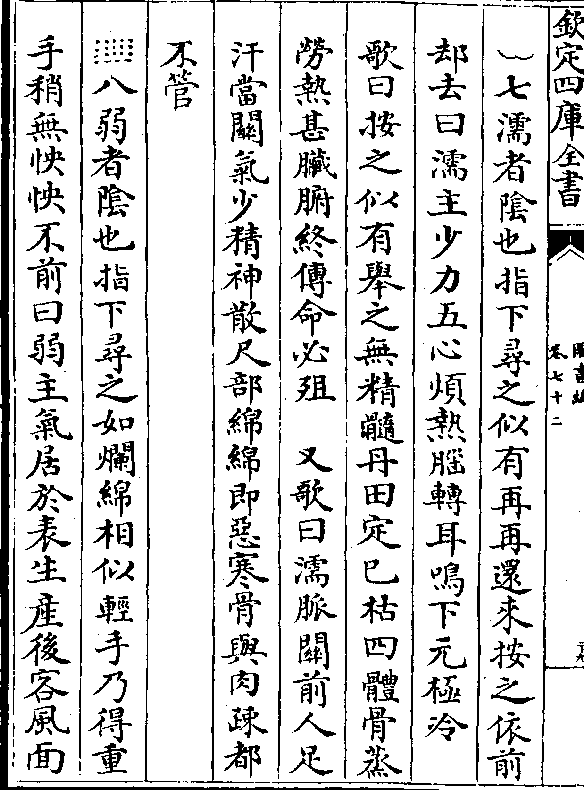 欽定四庫全書
圖書編
卷七十二
七濡者陰也指下尋之似有再再還來按之依前
却去曰濡主少力五心煩熱腦轉耳鳴下元極冷
歌曰按之似有舉之無精髓丹田定已枯四體骨蒸
勞熱甚臟腑終傳命必殂　又歌曰濡脈關前人足
汗當關氣少精神散尺部綿綿即惡寒骨與肉疎都
不管
八弱者陰也指下尋之如爛綿相似輕手乃得重
手稍無怏怏不前曰弱主氣居於表生産後客風面